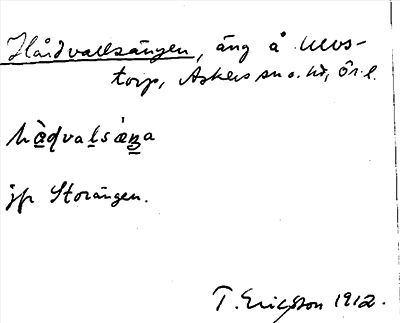 Hårdvallsängen, äng å Ulvs-
torp, Askers sn o. hd, Ör. l.
hàḍvaḷsǽŋa
jfr Storängen.
T. Ericsson 1912.